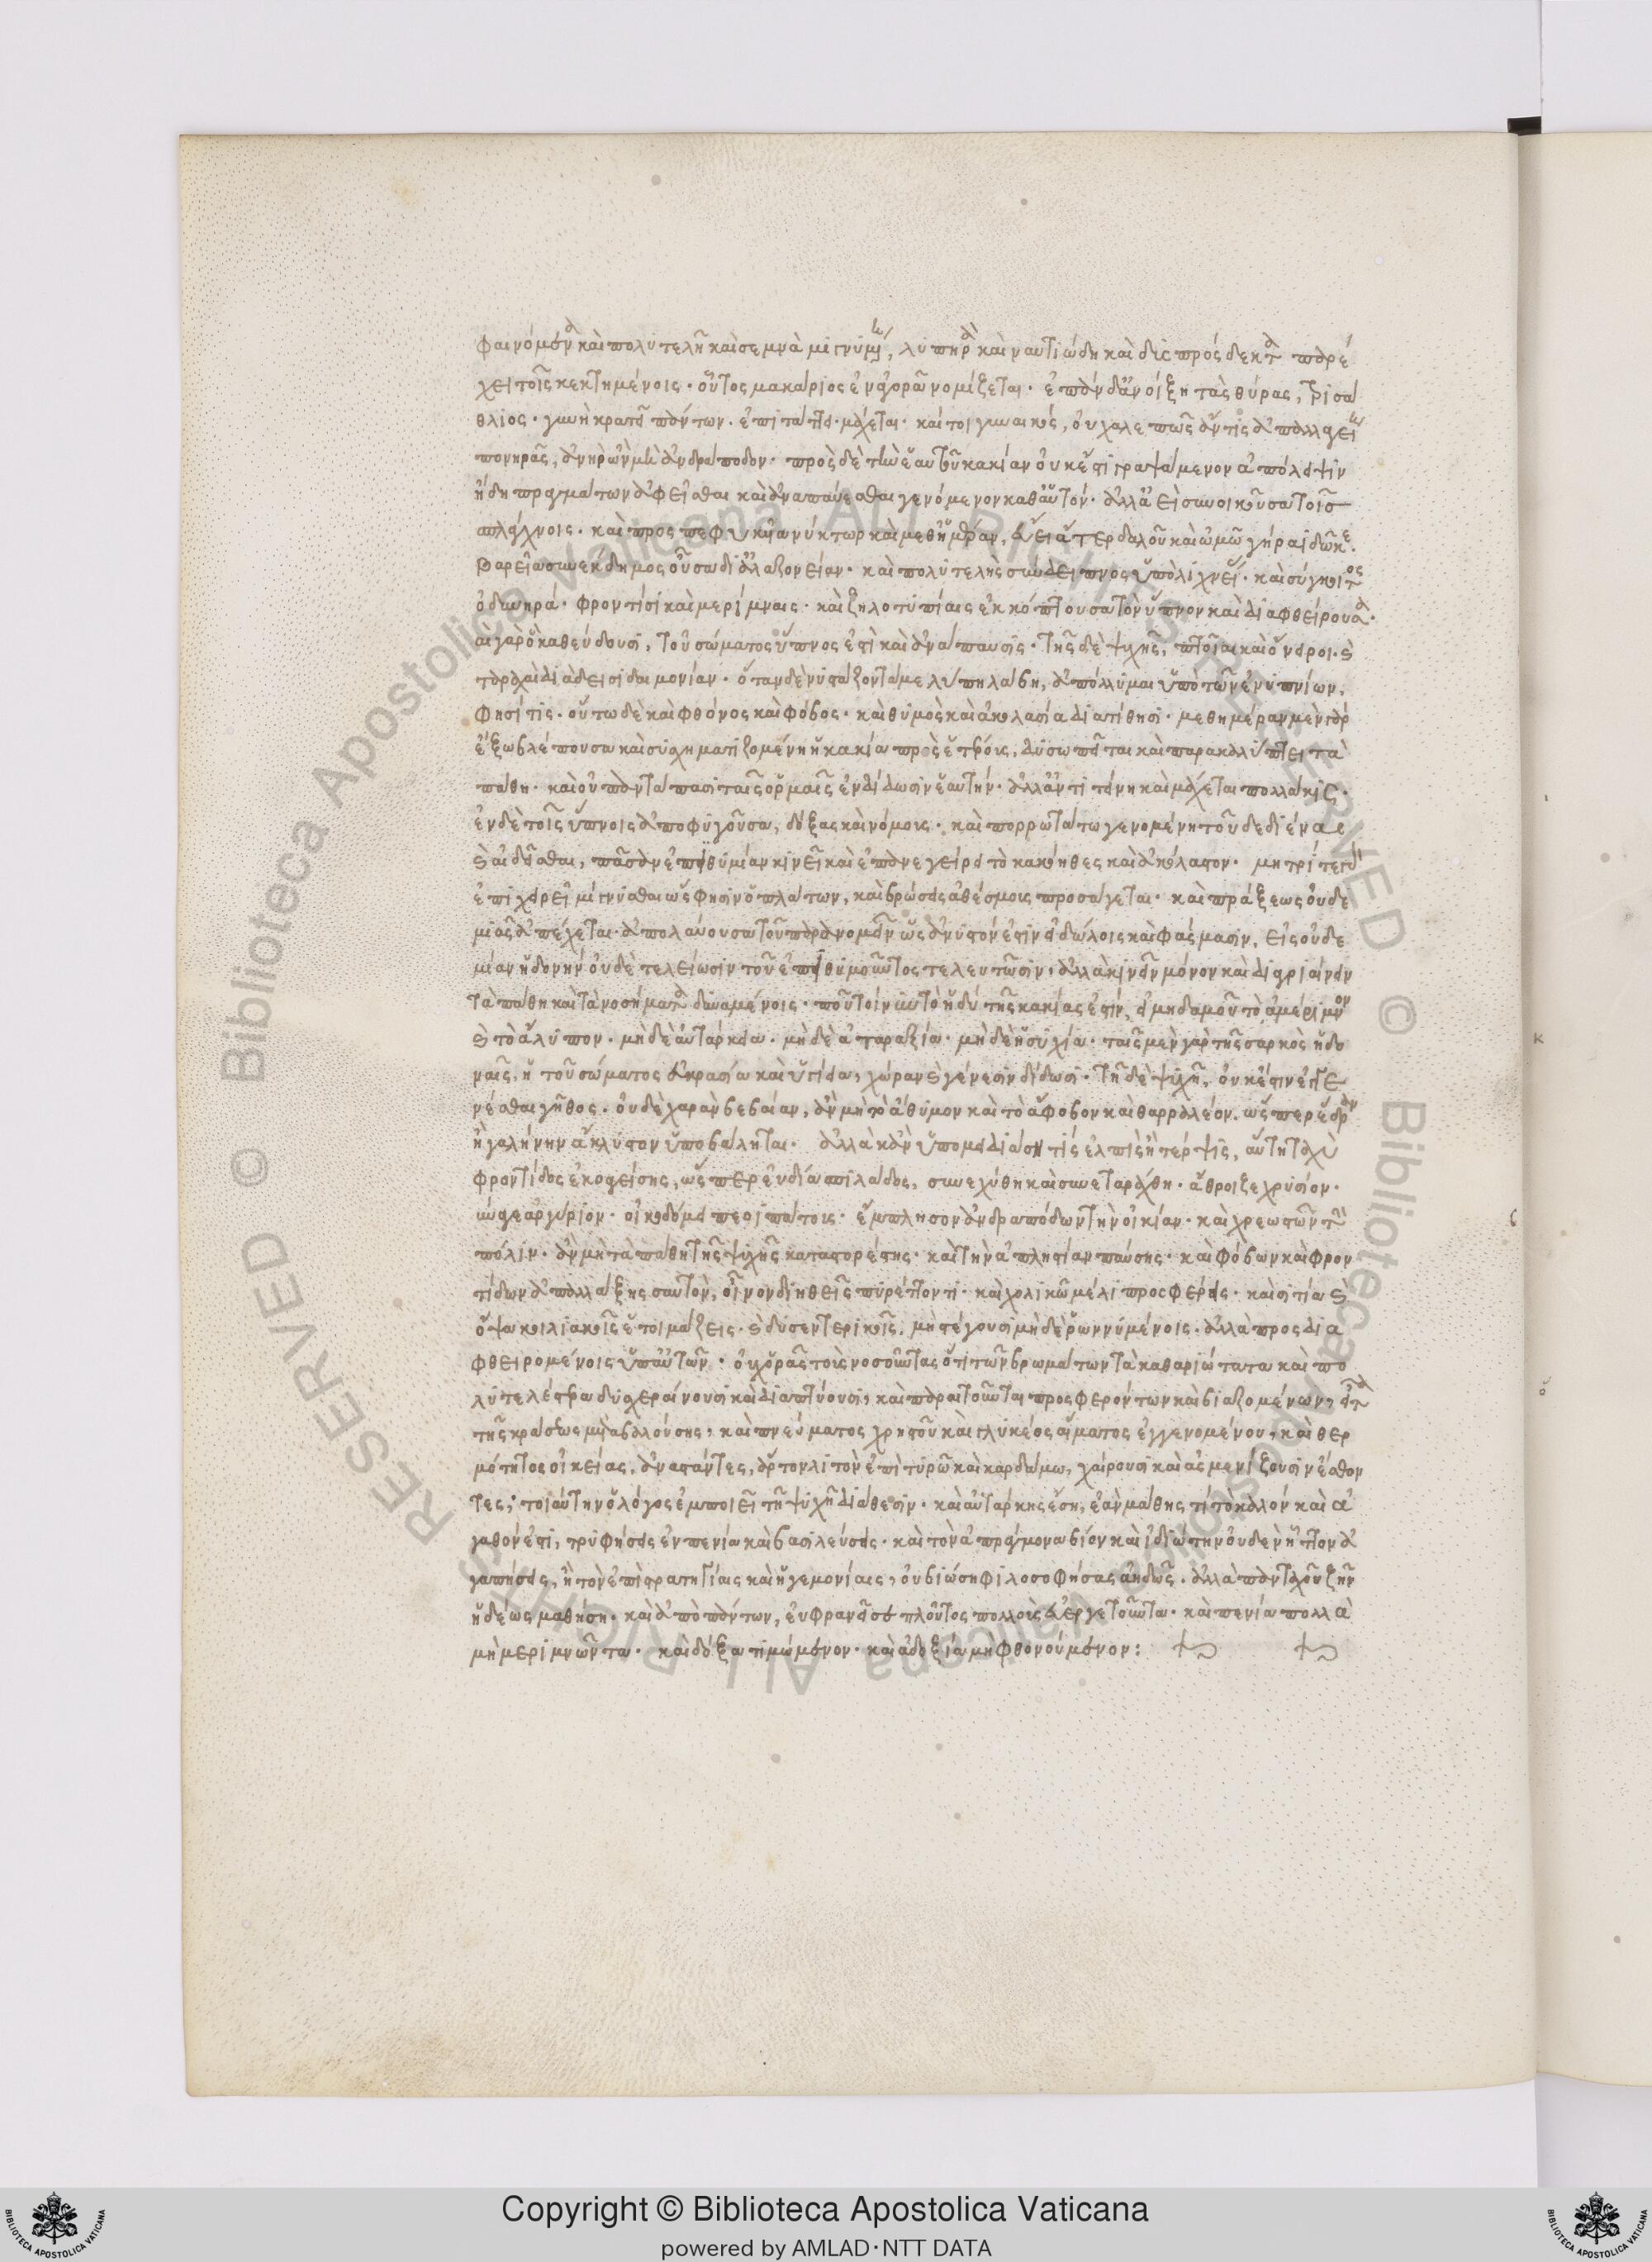 φαινόμενα καὶ πολυτελῆ καὶ σεμνὰ μιγνυμένη, λυπηρὰ καὶ ναυτιώδη καὶ δυσπρόσδεκτα παρέ
χει τοῖς κεκτημένοις· οὗτος μακάριος ἐν ἀγορᾷ νομίζεται· ἐπὰν δ' ἀνοίξῃ τὰς θύρας, τρισά
θλιος· γυνὴ κρατεῖ πάντων· ἐπιτάττει· μάχεται· καίτοι γυναικός, οὐ χαλεπῶς ἄν τις ἀπαλλαγείη
πονηρᾶς, ἀνὴρ ὢν μὴ ἀνδράποδον· πρὸς δὲ τὴν ἑαυτοῦ κακίαν οὐκ ἔστι γραψάμενον ἀπόλειψιν
ἤδη πραγμάτων ἀφεῖσθαι καὶ ἀναπαύεσθαι γενόμενον καθ' αὑτόν· ἀλλ' ἀεὶ συνοικοῦσα τοῖς
σπλάγχνοις· καὶ προσπεφυκυῖα νύκτωρ καὶ μεθ' ἡμέραν, εὕει ἄτερ δαλοῦ καὶ ὠμῷ γήραϊ δῶκε·
βαρεῖα συνέκδημος οὖσα δι' ἀλαζονείαν· καὶ πολυτελὴς σύνδειπνος ὑπὸ λιχνείας· καὶ σύγκοιτος
ὀδυνηρά· φροντίσι καὶ μερίμναις· καὶ ζηλοτυπίαις ἐκκόπτουσα τὸν ὕπνον καὶ διαφθείρουσα·
αἳ γὰρ οὐ καθεύδουσι, τοῦ σώματος ὕπνος ἐστὶ καὶ ἀνάπαυσις· τῆς δὲ ψυχῆς, πτοῖαι καὶ ὄνειροι καὶ
ταραχαὶ διὰ δεισιδαιμονίαν· ὅταν δὲ νυστάζοντά με λύπη λάβῃ, ἀπόλλυμαι ὑπὸ τῶν ἐνυπνίων,
φησί τις· οὕτω δὲ καὶ φθόνος καὶ φόβος· καὶ θυμὸς καὶ ἀκολασία διατίθησι· μεθ' ἡμέραν μὲν γὰρ
ἔξω βλέπουσα καὶ συσχηματιζομένη ἡ κακία πρὸς ἑτέρους, δυσωπεῖται καὶ παρακαλύπτει τὰ
πάθη· καὶ οὐ παντάπασι ταῖς ὁρμαῖς ἐνδίδωσιν ἑαυτήν· ἀλλ' ἀντιτείνει καὶ μάχεται πολλάκις·
ἐν δὲ τοῖς ὕπνοις ἀποφυγοῦσα, δόξας καὶ νόμους· καὶ πορρωτάτω γενομένη τοῦ δεδιέναι
καὶ αἰδεῖσθαι, πᾶσαν ἐπιθυμίαν κινεῖ καὶ ἐπανεγείρει τὸ κακόηθες καὶ ἀκόλαστον· μητρί τε γὰρ
ἐπιχειρεῖ μίγνυσθαι ὥς φησιν ὁ πλάτων, καὶ βρώσεις ἀθέσμους προσάγεται· καὶ πράξεως οὐδε
μιᾶς ἀπέχεται· ἀπολαύουσα τοῦ παρανομεῖν ὡς ἀνυστόν ἐστιν εἰδώλοις καὶ φάσμασιν, εἰς οὐδε
μίαν ἡδονὴν οὐδὲ τελείωσιν τοῦ ἐπιθυμοῦντος τελευτῶσιν, ἀλλὰ κινεῖν μόνον καὶ διαγριαίνειν
τὰ πάθη καὶ τὰ νοσήματα δυναμένοις· ποῦ τοίνυν τὸ ἡδὺ τῆς κακίας ἐστίν, εἰ μηδαμοῦ τὸ ἀμέριμνον
καὶ τὸ ἄλυπον· μηδὲ αὐτάρκεια· μηδὲ ἀταραξία· μηδὲ ἡσυχία· ταῖς μὲν γὰρ τῆς σαρκὸς ἡδο
ναῖς, ἡ τοῦ σώματος εὐκρασία καὶ ὑγίεια, χώραν καὶ γένεσιν δίδωσι· τῇ δὲ ψυχῇ, οὐκ ἔστιν ἐγγε
νέσθαι γῆθος· οὐδὲ χαρὰν βεβαίαν, ἂν μὴ τὸ εὔθυμον καὶ τὸ ἄφοβον καὶ θαρραλέον· ὥσπερ ἕδραν
ἢ γαλήνην ἄκλυστον ὑποβάληται· ἀλλὰ κἂν ὑπομειδιάσῃ τις ἐλπὶς ἢ τέρψις, αὕτη ταχὺ
φροντίδος ἐκραγείσης, ὥσπερ ἐν εὐδίᾳ σπιλάδος, συνεχύθη καὶ συνεταράχθη· ἄθροιζε χρυσίον·
σύναγε ἀργύριον· οἰκοδόμει περιπάτους· ἔμπλησον ἀνδραπόδων τὴν οἰκίαν· καὶ χρεωστῶν τὴν
πόλιν· ἂν μὴ τὰ πάθη τῆς ψυχῆς καταστορέσῃς· καὶ τὴν ἀπληστίαν παύσῃς· καὶ φόβων καὶ φρον
τίδων ἀπαλλάξῃς σαυτὸν, οἶνον διηθεῖς πυρέττοντι· καὶ χολικῷ μέλι προσφέρεις· καὶ σιτία καὶ
ὄψα κοιλιακοῖς ἑτοιμάζεις· καὶ δυσεντερικοῖς, μὴ στέγουσι μηδὲ ῥωννυμένοις· ἀλλὰ προσδια
φθειρομένοις ὑπ' αὐτῶν· οὐχ ὁρᾷς τοὺς νοσοῦντας ὅτι τῶν βρωμάτων τὰ καθαριώτατα καὶ πο
λυτελέστερα δυσχεραίνουσι καὶ διαπτύουσι, καὶ παραιτοῦνται προσφερόντων καὶ βιαζομένων, εἶτα
τῆς κράσεως μεταβαλούσης, καὶ πνεύματος χρηστοῦ καὶ γλυκέος αἵματος ἐγγενομένου, καὶ θερ
μότητος οἰκείας, ἀναστάντες, ἄρτον λιτὸν ἐπὶ τυρῷ καὶ καρδάμῳ, χαίρουσι καὶ ἀσμενίζουσιν ἐσθον
τες; τοιαύτην ὁ λόγος ἐμποιεῖ τῇ ψυχῇ διάθεσιν· καὶ αὐτάρκης ἔσῃ, ἐὰν μάθῃς τί τὸ καλὸν καὶ ἀ
γαθόν ἐστι, τρυφήσεις ἐν πενίᾳ καὶ βασιλεύσεις· καὶ τὸν ἀπράγμονα βίον καὶ ἰδιώτην οὐδὲν ἧττον ἀ
γαπήσεις, ἢ τὸν ἐπὶ στρατηγίαις καὶ ἡγεμονίαις, οὐ βιώσῃ φιλοσοφήσας ἀηδῶς· ἀλλὰ πανταχοῦ ζῆν
ἡδέως μαθήσῃ· καὶ ἀπὸ πάντων, εὐφρανεῖ σε πλοῦτος πολλοὺς εὐεργετοῦντα· καὶ πενία πολλὰ
μὴ μεριμνῶντα· καὶ δόξα τιμώμενον· καὶ ἀδοξία μὴ φθονούμενον:
Copyright © Biblioteca Apostolica Vaticana
powered by AMLAD·NTT DATA